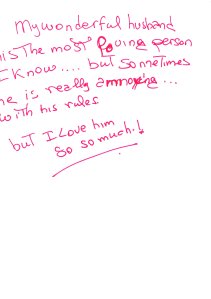 My wonderful husband
is The most loving person
I know.... but sometimes
he is really annoying...
with his rules
but I Love him
so so much.!